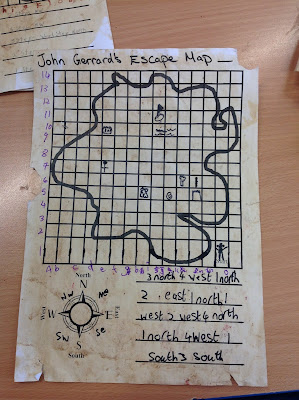 John Gerrard's Escape Map
14
13
12
11
10
9
8
7
6
5
4
3
2
1
A b c d e f
North
N
NW NE
West W E East
SW SE
S
South
3 north 4 west 1 north
2 . east 1 north 1
west 2 west 4 north
1 north 4 West 1
South 3 South